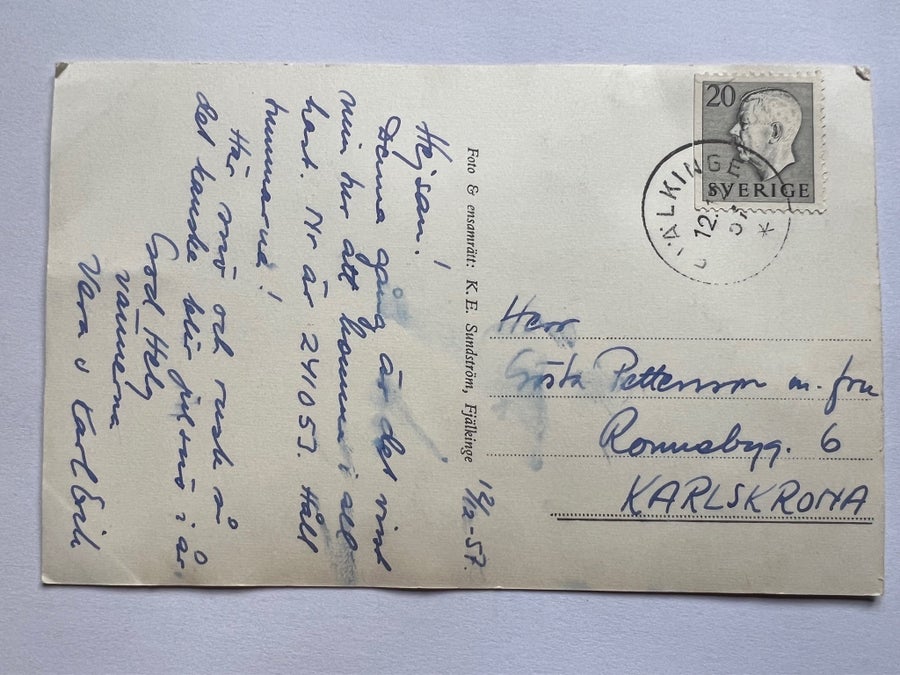 Hejsan!
Denna gång är det vinst
min tur att komma i all
hast. Nr är 241053. Håll
tummarna!
Här snö och rusk så
det kanske blir julsnö i år
God Helg
vännerna
Vera o Karl Erik
Foto & ensamrätt: K. E. Sundström, Fjälkinge
12/12-57.
20
SVERIGE
JÄLKINGE
12
Herr
Gösta Pettersson m. fru
Ronnebyg. 6
KARLSKRONA